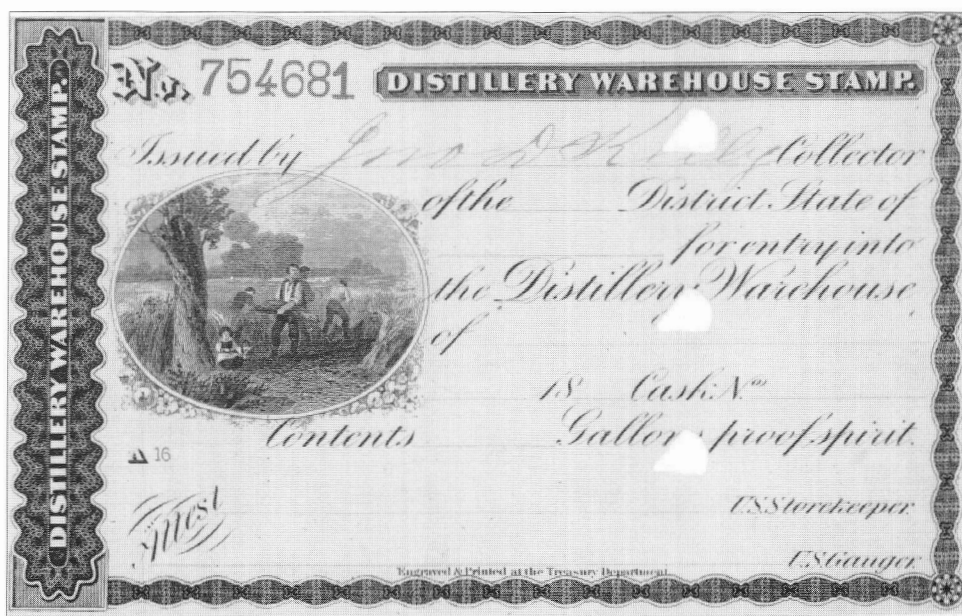 DISTILLERY WAREHOUSE STAMP.
No. 754681 DISTILLERY WAREHOUSE STAMP.
Issued by Jno D Collector
of the District State of
for entry into
the Distillery Warehouse
of
18 Cask Nos
Contents Gallons proof spirit.
A 16
Attest
U.S. Storekeeper
U.S. Gauger
Engraved & Printed at the Treasury Department.